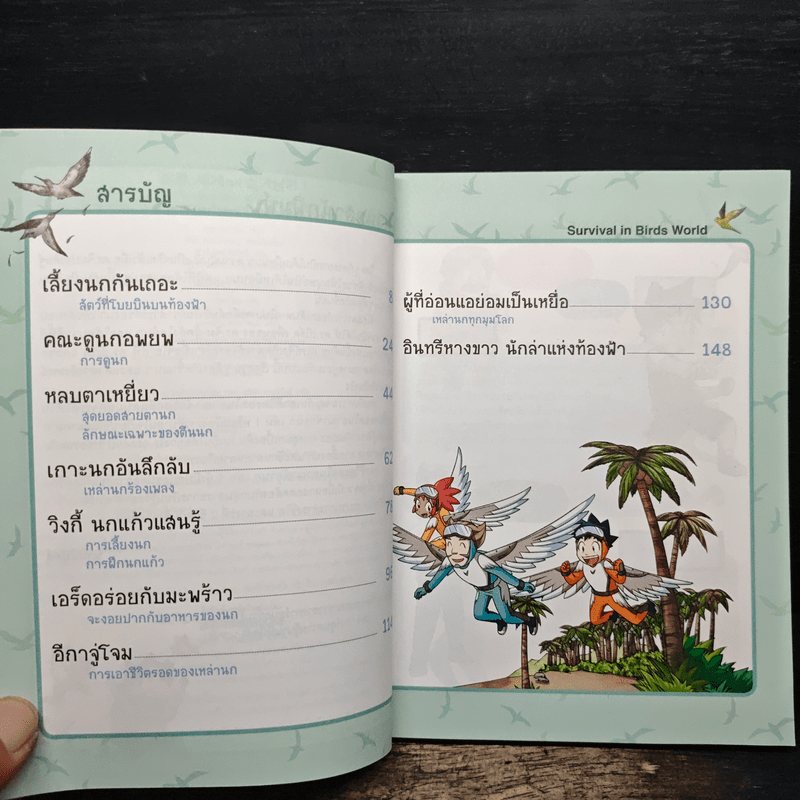 สารบัญ
เลี้ยงนกกันเถอะ 8
สัตว์ที่โบยบินบนท้องฟ้า
คณะดูนกอพยพ 24
การดูนก
หลบตาเหยี่ยว 44
สุดยอดสายตานก
ลักษณะเฉพาะของตีนนก
เกาะนกอันลึกลับ 62
เหล่านกร้องเพลง
วิงกี้ นกแก้วแสนรู้ 78
การเลี้ยงนก
การฝึกนกแก้ว
เอร็ดอร่อยกับมะพร้าว 96
จะงอยปากกับอาหารของนก
อีกาจู่โจม 114
การเอาชีวิตรอดของเหล่านก
Survival in Birds World
ผู้ที่อ่อนแอย่อมเป็นเหยื่อ 130
เหล่านกทุกมุมโลก
อินทรีหางขาว นักล่าแห่งท้องฟ้า 148